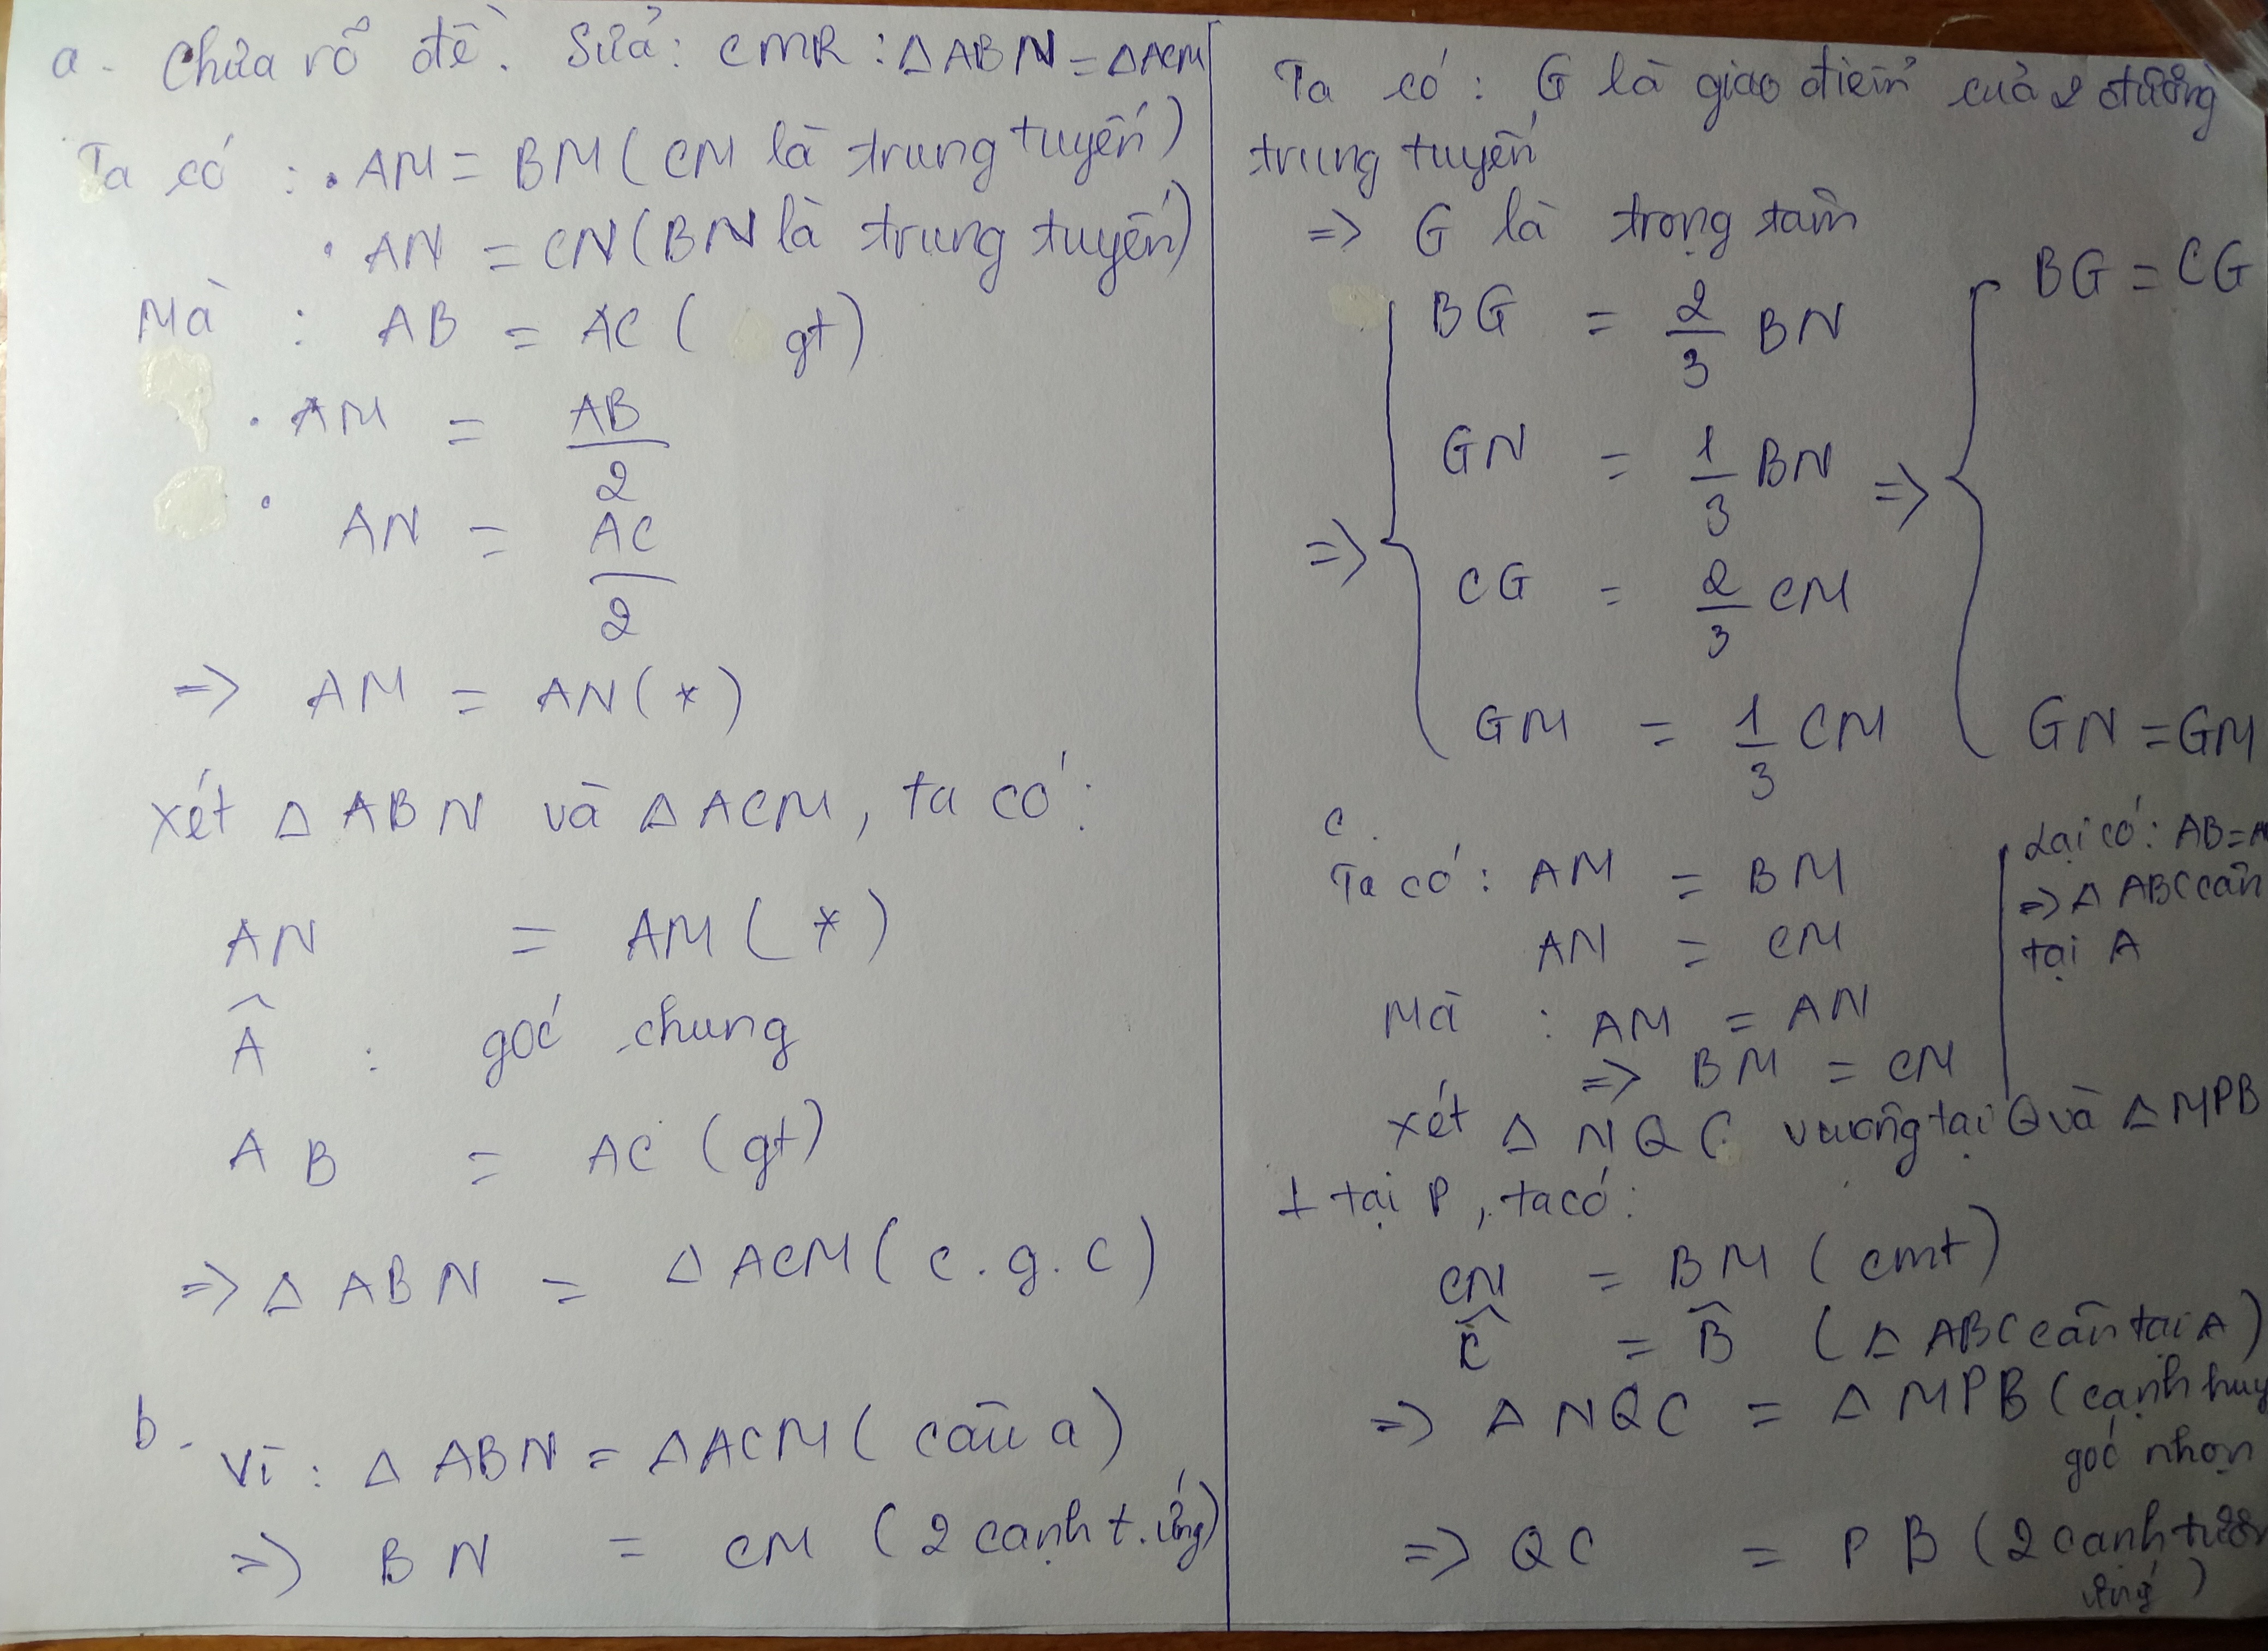 a. Chưa rõ đề. Sửa: CMR: ΔABN = ΔACM
Ta có: • AM = BM (CM là trung tuyến)
• AN = CN (BN là trung tuyến)
Mà : AB = AC ( gt)
• AM = AB/2
• AN = AC/2
=> AM = AN (*)
xét Δ ABN và Δ ACM, ta có:
AN = AM (*)
Â : góc chung
AB = AC (gt)
=> Δ ABN = Δ ACM (c.g.c)
b. Vì: Δ ABN = ΔACM (câu a)
=> BN = CM (2 cạnh t.ứng)
Ta có: G là giao điểm của 2 đường
trung tuyến
=> G là trọng tâm
=> { BG = 2/3 BN
GN = 1/3 BN
CG = 2/3 CM
GM = 1/3 CM
=> { BG = CG
GN = GM
c.
Ta có: AM = BM
AN = CM
Mà : AM = AN
=> BM = CN
Lại có: AB = A
=> Δ ABC cân
tại A
xét Δ NQC vuông tại Q và Δ MPB
⊥ tại P, ta có:
CN = BM (cmt)
Ĉ = B̂ (Δ ABC cân tại A)
=> Δ NQC = Δ MPB (cạnh huy
góc nhọn
=> QC = PB (2 cạnh tươn
ứng)